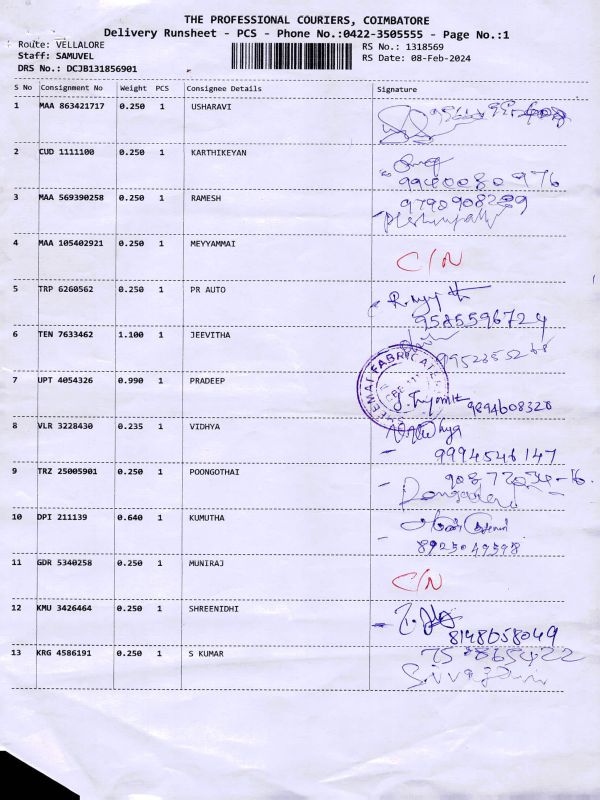 THE PROFESSIONAL COURIERS, COIMBATORE
Delivery Runsheet - PCS - Phone No.:0422-3505555 - Page No.:1
Route: VELLALORE RS No.: 1318569
Staff: SAMUVEL RS Date: 08-Feb-2024
DRS No.: DCJB131856901
S No Consignment No Weight PCS Consignee Details Signature
1 MAA 863421717 0.250 1 USHARAVI
2 CUD 1111100 0.250 1 KARTHIKEYAN
9940080976
3 MAA 569390258 0.250 1 RAMESH
4 MAA 105402921 0.250 1 MEYYAMMAI C/N
5 TRP 6260562 0.250 1 PR AUTO
9585596724
6 TEN 7633462 1.100 1 JEEVITHA
7 UPT 4054326 0.990 1 PRADEEP
9894608328
8 VLR 3228430 0.235 1 VIDHYA
9994546147
9 TRZ 25005901 0.250 1 POONGOTHAI
10 DPI 211139 0.640 1 KUMUTHA
8925049598
11 GDR 5340258 0.250 1 MUNIRAJ
C/N
12 KMU 3426464 0.250 1 SHREENIDHI
8148058049
13 KRG 4586191 0.250 1 S KUMAR